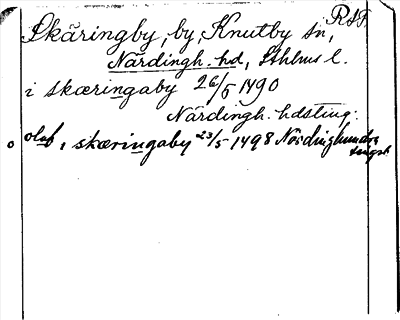 RST
Skäringby, by, Knutby sn,
Närdingh. hd, Sthlms l.
i skæringaby 26/5 1490
Närdingh. hdsting.
olof i skæringaby 23/5 1498 Nördinghundra
tingst